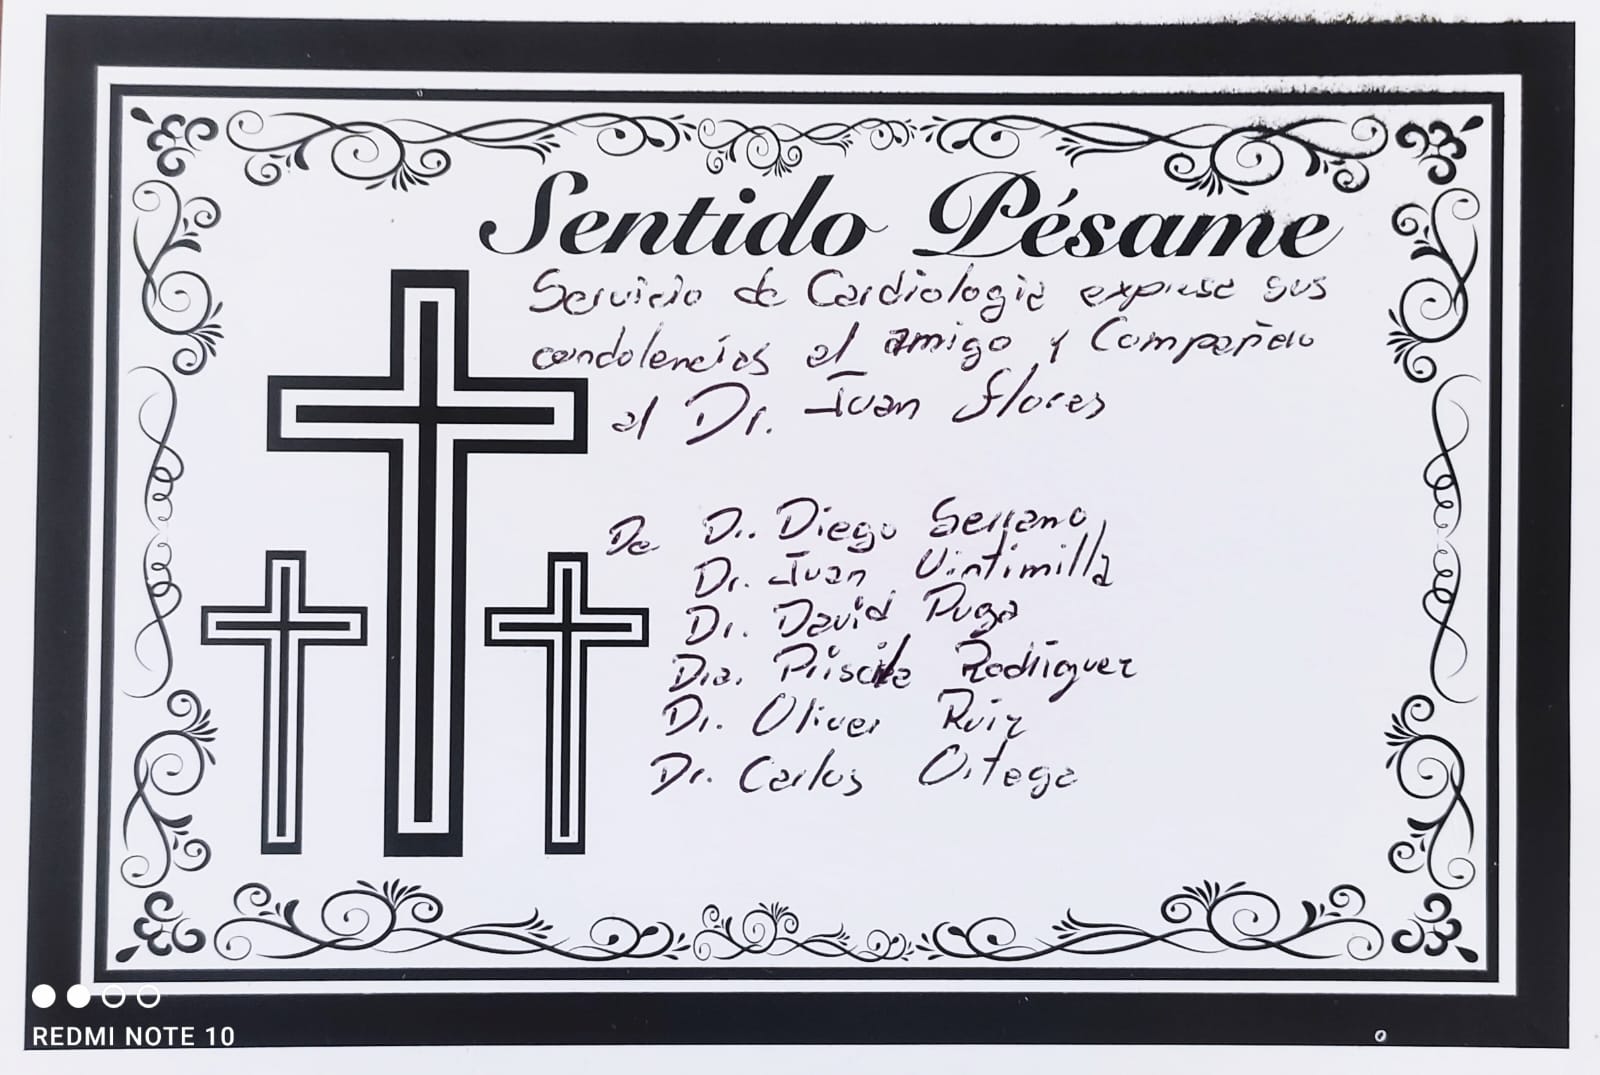 Sentido Pésame
Servicio de Cardiologia expresa sus
condolencias al amigo y Compañero
al Dr. Juan Flores
De Dr. Diego Serrano,
Dr. Juan Vintimilla
Dr. David Puga
Dra. Priscila Rodriguez
Dr. Oliver Ruiz
Dr. Carlos Ortega
REDMI NOTE 10